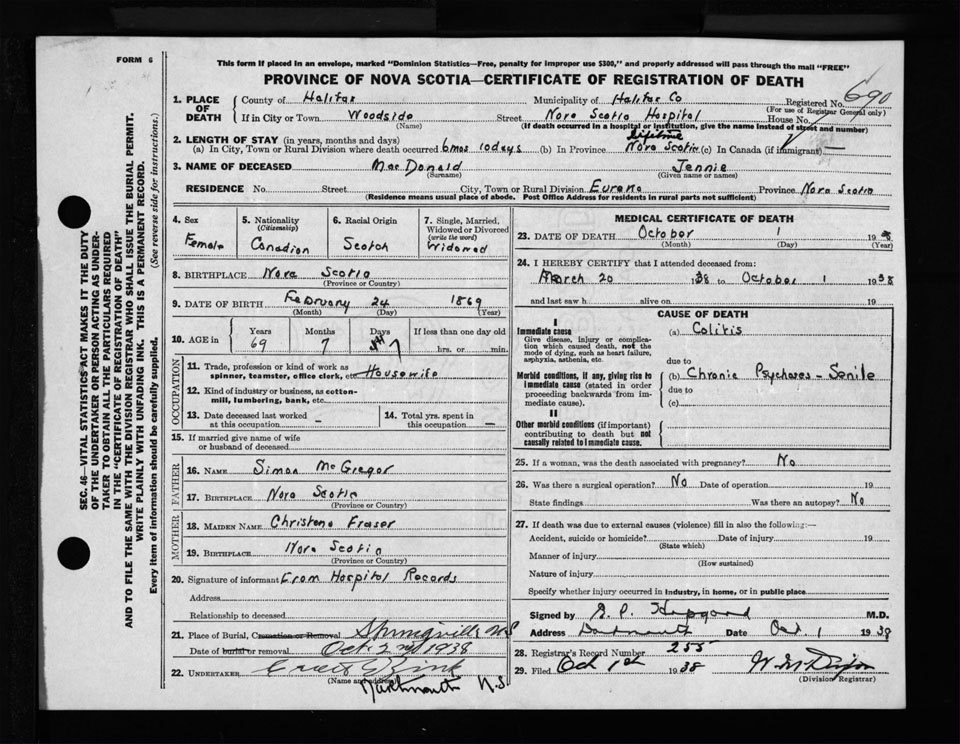 FORM 6
This form if placed in an envelope, marked "Dominion Statistics—Free, penalty for improper use $300," and properly addressed will pass through the mail "FREE"
PROVINCE OF NOVA SCOTIA—CERTIFICATE OF REGISTRATION OF DEATH
SEC. 46—VITAL STATISTICS ACT MAKES IT THE DUTY
OF THE UNDERTAKER OR PERSON ACTING AS UNDER-
TAKER TO OBTAIN ALL THE PARTICULARS REQUIRED
IN THE "CERTIFICATE OF REGISTRATION OF DEATH"
AND TO FILE THE SAME WITH THE DIVISION REGISTRAR WHO SHALL ISSUE THE BURIAL PERMIT.
WRITE PLAINLY WITH UNFADING INK. THIS IS A PERMANENT RECORD.
Every item of information should be carefully supplied. (See reverse side for instructions.)
1. PLACE OF DEATH County of Halifax Municipality of Halifax Co Registered No. 690
(For use of Registrar General only)
If in City or Town Woodside Street Nova Scotia Hospital House No.
(Name) (If death occurred in a hospital or institution, give the name instead of street and number)
2. LENGTH OF STAY (in years, months and days)
(a) In City, Town or Rural Division where death occurred 6 mos 10 days (b) In Province lifetime Nova Scotia (c) In Canada (if immigrant) —
3. NAME OF DECEASED MacDonald Jennie
(Surname) (Given name or names)
RESIDENCE No. Street City, Town or Rural Division Eureka Province Nova Scotia
(Residence means usual place of abode. Post Office Address for residents in rural parts not sufficient)
4. Sex Female
5. Nationality (Citizenship) Canadian
6. Racial Origin Scotch
7. Single, Married, Widowed or Divorced (write the word) Widowed
8. BIRTHPLACE Nova Scotia
(Province or Country)
9. DATE OF BIRTH February 24 1869
(Month) (Day) (Year)
10. AGE in Years 69 Months 7 Days 7 If less than one day old
hrs. or min.
OCCUPATION
11. Trade, profession or kind of work as
spinner, teamster, office clerk, etc. Housewife
12. Kind of industry or business, as cotton-
mill, lumbering, bank, etc.
13. Date deceased last worked
at this occupation —
14. Total yrs. spent in
this occupation —
15. If married give name of wife
or husband of deceased
FATHER
16. NAME Simon McGregor
17. BIRTHPLACE Nova Scotia
(Province or Country)
MOTHER
18. MAIDEN NAME Christena Fraser
19. BIRTHPLACE Nova Scotia
(Province or Country)
20. Signature of informant From Hospital Records
Address
Relationship to deceased
21. Place of Burial, Cremation or Removal Springville N.S
Date of burial or removal Oct. 2nd 1938
22. UNDERTAKER
(Name and address)
Dartmouth N.S
MEDICAL CERTIFICATE OF DEATH
23. DATE OF DEATH October 1 1938
(Month) (Day) (Year)
24. I HEREBY CERTIFY that I attended deceased from:
March 20 1938 to October 1 1938
and last saw h alive on 19
CAUSE OF DEATH
I
Immediate cause (a) Colitis
Give disease, injury or complica-
tion which caused death, not the
mode of dying, such as heart failure,
asphyxia, asthenia, etc.
due to
Morbid conditions, if any, giving rise to (b) Chronic Psychoses - Senile
immediate cause (stated in order due to
proceeding backwards from im- (c)
mediate cause).
II
Other morbid conditions (if important)
contributing to death but not
causally related to immediate cause.
25. If a woman, was the death associated with pregnancy? No
26. Was there a surgical operation? No Date of operation 19
State findings Was there an autopsy? No
27. If death was due to external causes (violence) fill in also the following:—
Accident, suicide or homicide? Date of injury 19
(State which)
Manner of injury
(How sustained)
Nature of injury
Specify whether injury occurred in industry, in home, or in public place
Signed by M.D.
Address Dartmouth Date Oct. 1 1938
28. Registrar's Record Number 255
29. Filed Oct 1st 1938
(Division Registrar)